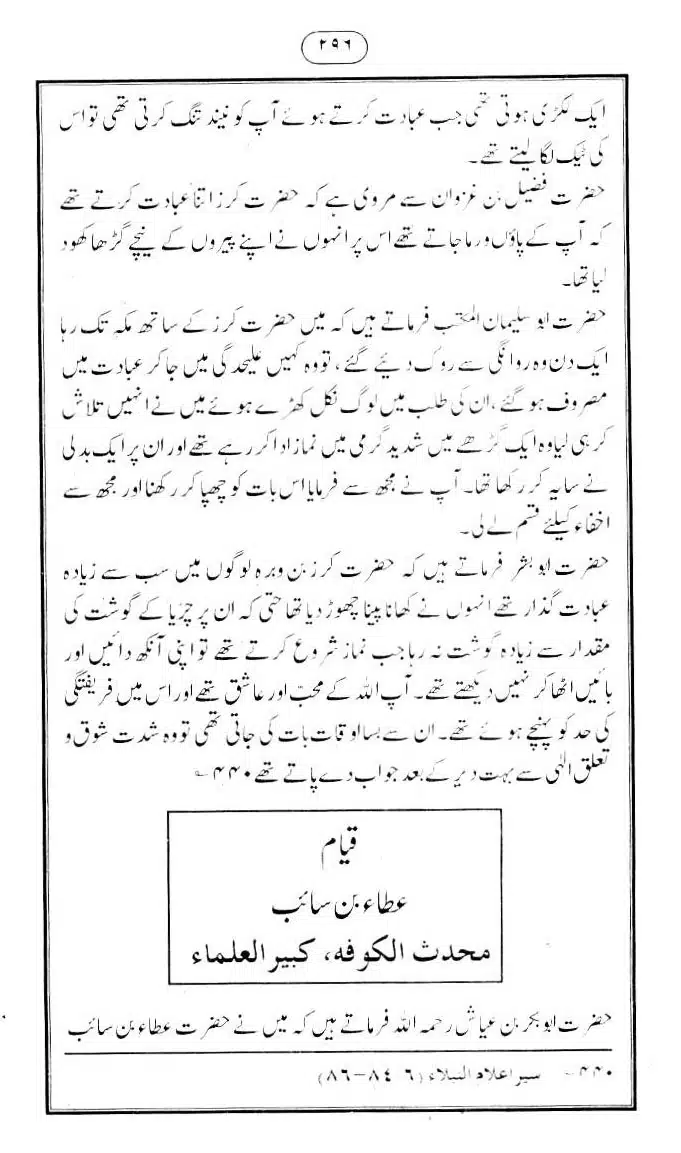 ۲۹۶
ایک لکڑی ہوتی تھی جب عبادت کرتے ہوئے آپ کو نیند تنگ کرتی تھی تو اس
کی ٹیک لگا لیتے تھے۔
حضرت فضیل بن غزوان سے مروی ہے کہ حضرت کرز اتنا عبادت کرتے تھے
کہ آپ کے پاؤں ورما جاتے تھے اس پر انہوں نے اپنے پیروں کے نیچے گڑھا کھود
لیا تھا۔
حضرت ابو سلیمان المکتب فرماتے ہیں کہ میں حضرت کرز کے ساتھ مکہ تک رہا
ایک دن وہ روانگی سے روک دئیے گئے، تو وہ کہیں علیحدگی میں جا کر عبادت میں
مصروف ہو گئے، ان کی طلب میں لوگ نکل کھڑے ہوئے میں نے انہیں تلاش
کر ہی لیا وہ ایک گڑھے میں شدید گرمی میں نماز ادا کر رہے تھے اور ان پر ایک بدلی
نے سایہ کر رکھا تھا۔ آپ نے مجھ سے فرمایا اس بات کو چھپا کر رکھنا اور مجھ سے
اخفاء کیلئے قسم لے لی۔
حضرت ابو بشر فرماتے ہیں کہ حضرت کرز بن وبرہ لوگوں میں سب سے زیادہ
عبادت گذار تھے انہوں نے کھانا پینا چھوڑ دیا تھا حتی کہ ان پر چڑیا کے گوشت کی
مقدار سے زیادہ گوشت نہ رہا جب نماز شروع کرتے تھے تو اپنی آنکھ دائیں اور
بائیں اٹھا کر نہیں دیکھتے تھے۔ آپ اللہ کے محبّ اور عاشق تھے اور اس میں فریفتگی
کی حد کو پہنچے ہوئے تھے۔ ان سے بسا اوقات بات کی جاتی تھی تو وہ شدت شوق و
تعلق الٰہی سے بہت دیر کے بعد جواب دے پاتے تھے ۴۴۰؎
قیام
عطاء بن سائب
محدث الکوفه، کبیر العلماء
حضرت ابو بکر بن عیاش رحمہ اللہ فرماتے ہیں کہ میں نے حضرت عطاء بن سائب
۴۴۰؎ سیر اعلام النبلاء (۶ ۸۴-۸۶)